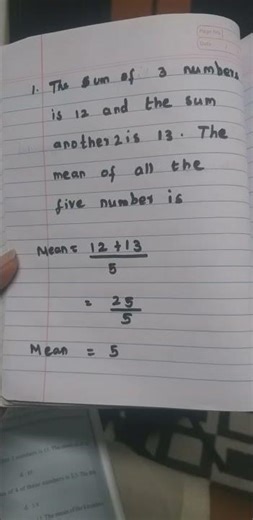 1. The sum of 3 numbers
is 12 and the sum
another 2 is 13. The
mean of all the
five number is
Mean = 12 + 13
5
= 25
5
Mean = 5